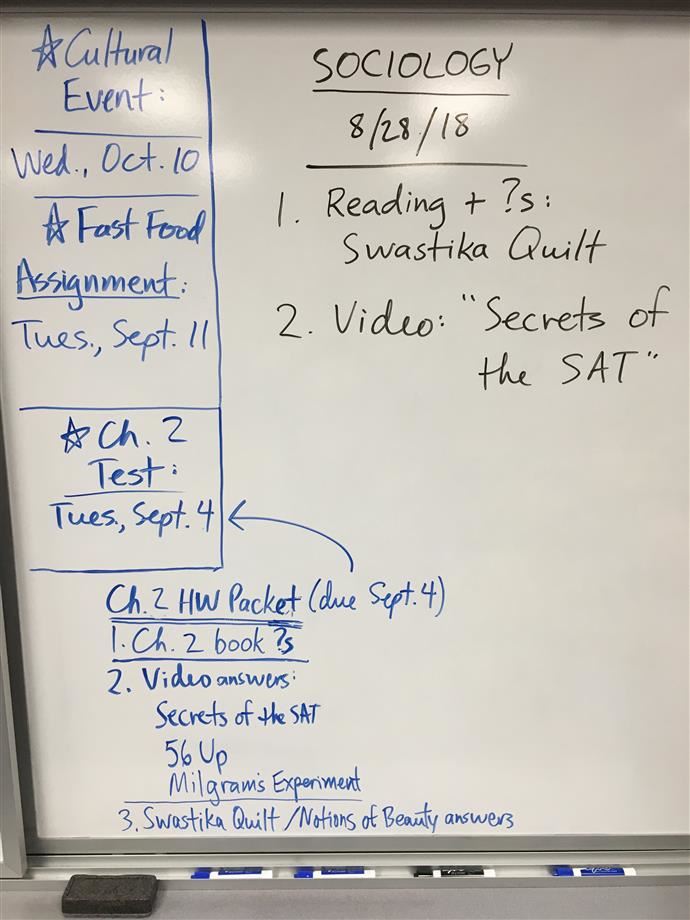 ☆Cultural
Event:
Wed., Oct. 10
☆Fast Food
Assignment:
Tues., Sept. 11
☆Ch. 2
Test:
Tues., Sept. 4
SOCIOLOGY
8/28/18
1. Reading + ?s:
Swastika Quilt
2. Video: "Secrets of
the SAT"
Ch. 2 HW Packet (due Sept. 4)
1. Ch. 2 book ?s
2. Video answers:
Secrets of the SAT
56 Up
Milgram's Experiment
3. Swastika Quilt / Notions of Beauty answers